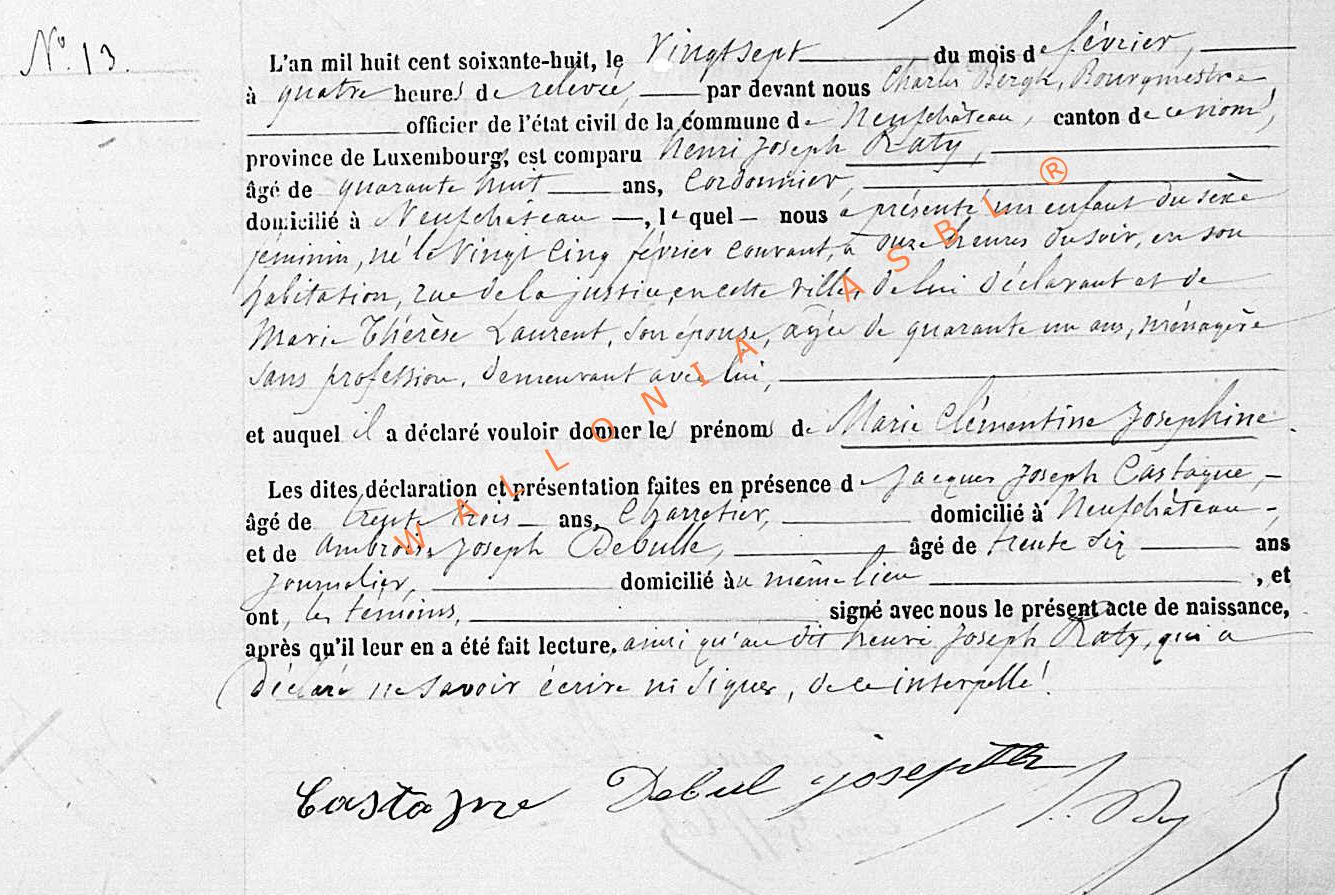 N° 13.
L'an mil huit cent soixante-huit, le Vingt sept du mois de février,
à quatre heures de relevée, par devant nous Charles Bergh, Bourgmestre
officier de l'état civil de la commune de Neufchâteau, canton de ce nom,
province de Luxembourg, est comparu henri Joseph Raty,
âgé de quarante huit ans, Cordonnier,
domicilié à Neufchâteau, lequel nous a présenté un enfant du sexe
féminin, né le Vingt Cinq février courant, à onze heures du soir, en son
habitation, rue de la justice, en cette ville, de lui déclarant et de
Marie Thérèse Laurent, son épouse, agée de quarante un ans, ménagère
sans profession, demeurant avec lui,
et auquel il a déclaré vouloir donner les prénoms de Marie Clémentine Josephine.
Les dites déclaration et présentation faites en présence de Jacques Joseph Castagne,
âgé de trente trois ans, Charretier, domicilié à Neufchâteau,
et de Ambroise Joseph Debulle, âgé de trente six ans
journalier, domicilié au même lieu, et
ont, les temoins, signé avec nous le présent acte de naissance,
après qu'il leur en a été fait lecture. ainsi qu'au dit henri Joseph Raty, qui a
déclaré ne savoir écrire ni signer, de ce interpellé!
Castagne Debul joseph
WALLONIA ASBL ®